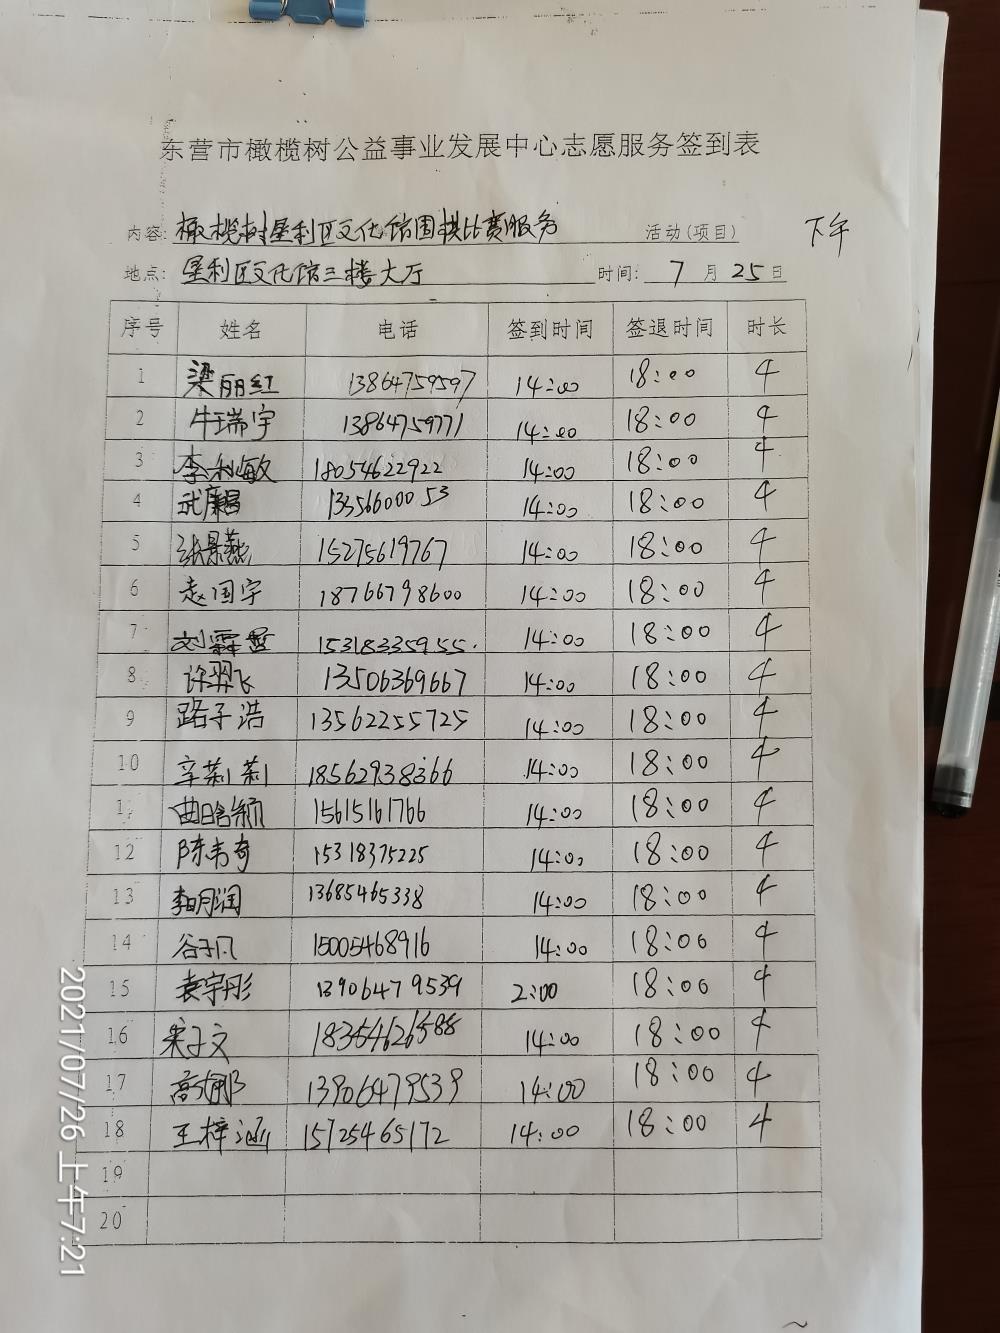 东营市橄榄树公益事业发展中心志愿服务签到表
内容: 橄榄树垦利区文化馆围棋比赛服务 活动(项目) 下午
地点: 垦利区文化馆三楼大厅 时间: 7 月 25 日
序号 姓名 电话 签到时间 签退时间 时长
1 梁丽红 13864759597 14:00 18:00 4
2 牛瑞宇 13864759771 14:00 18:00 4
3 李利敏 18054622922 14:00 18:00 4
4 武康昌 13356600053 14:00 18:00 4
5 张景燕 15275619767 14:00 18:00 4
6 赵国宇 18766798600 14:00 18:00 4
7 刘霖 15318335955. 14:00 18:00 4
8 许羿飞 13506369667 14:00 18:00 4
9 路子浩 13562255725 14:00 18:00 4
10 辛莉莉 18562938366 14:00 18:00 4
11 曲晗颖 15615161766 14:00 18:00 4
12 陈韦奇 15318375225 14:00 18:00 4
13 李明润 13685465338 14:00 18:00 4
14 谷子凡 15005468916 14:00 18:00 4
15 袁宇彤 13906479539 2:00 18:00 4
16 宋子文 18354626588 14:00 18:00 4
17 高 13906479539 14:00 18:00 4
18 王梓涵 15725465172 14:00 18:00 4
19
20
2021/07/26 上午7:21